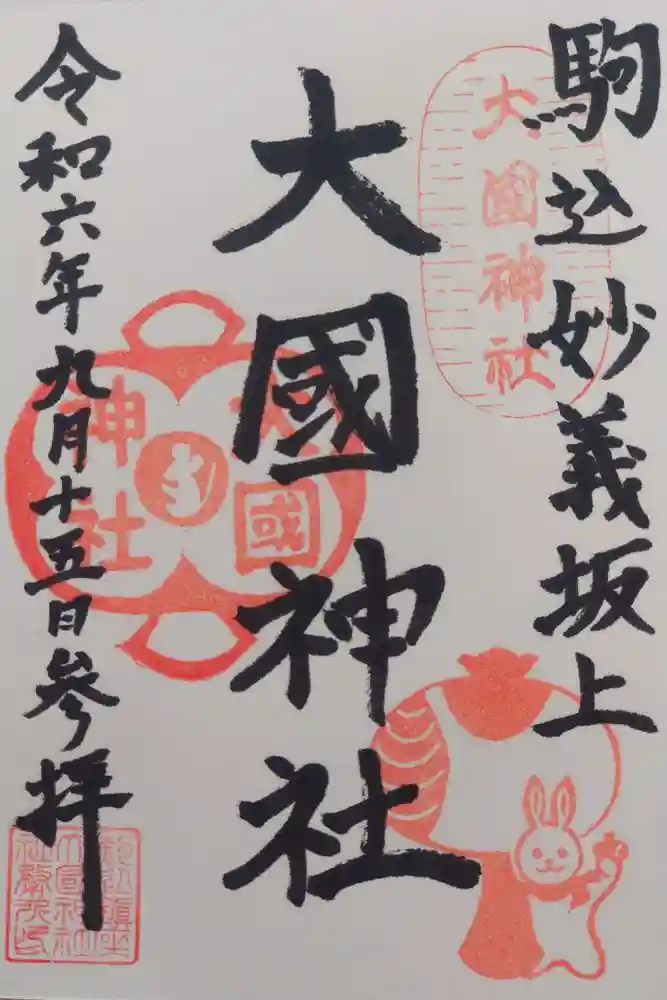 駒込妙義坂上
大国神社
大國神社
大國
神社
令和六年九月十五日参拝